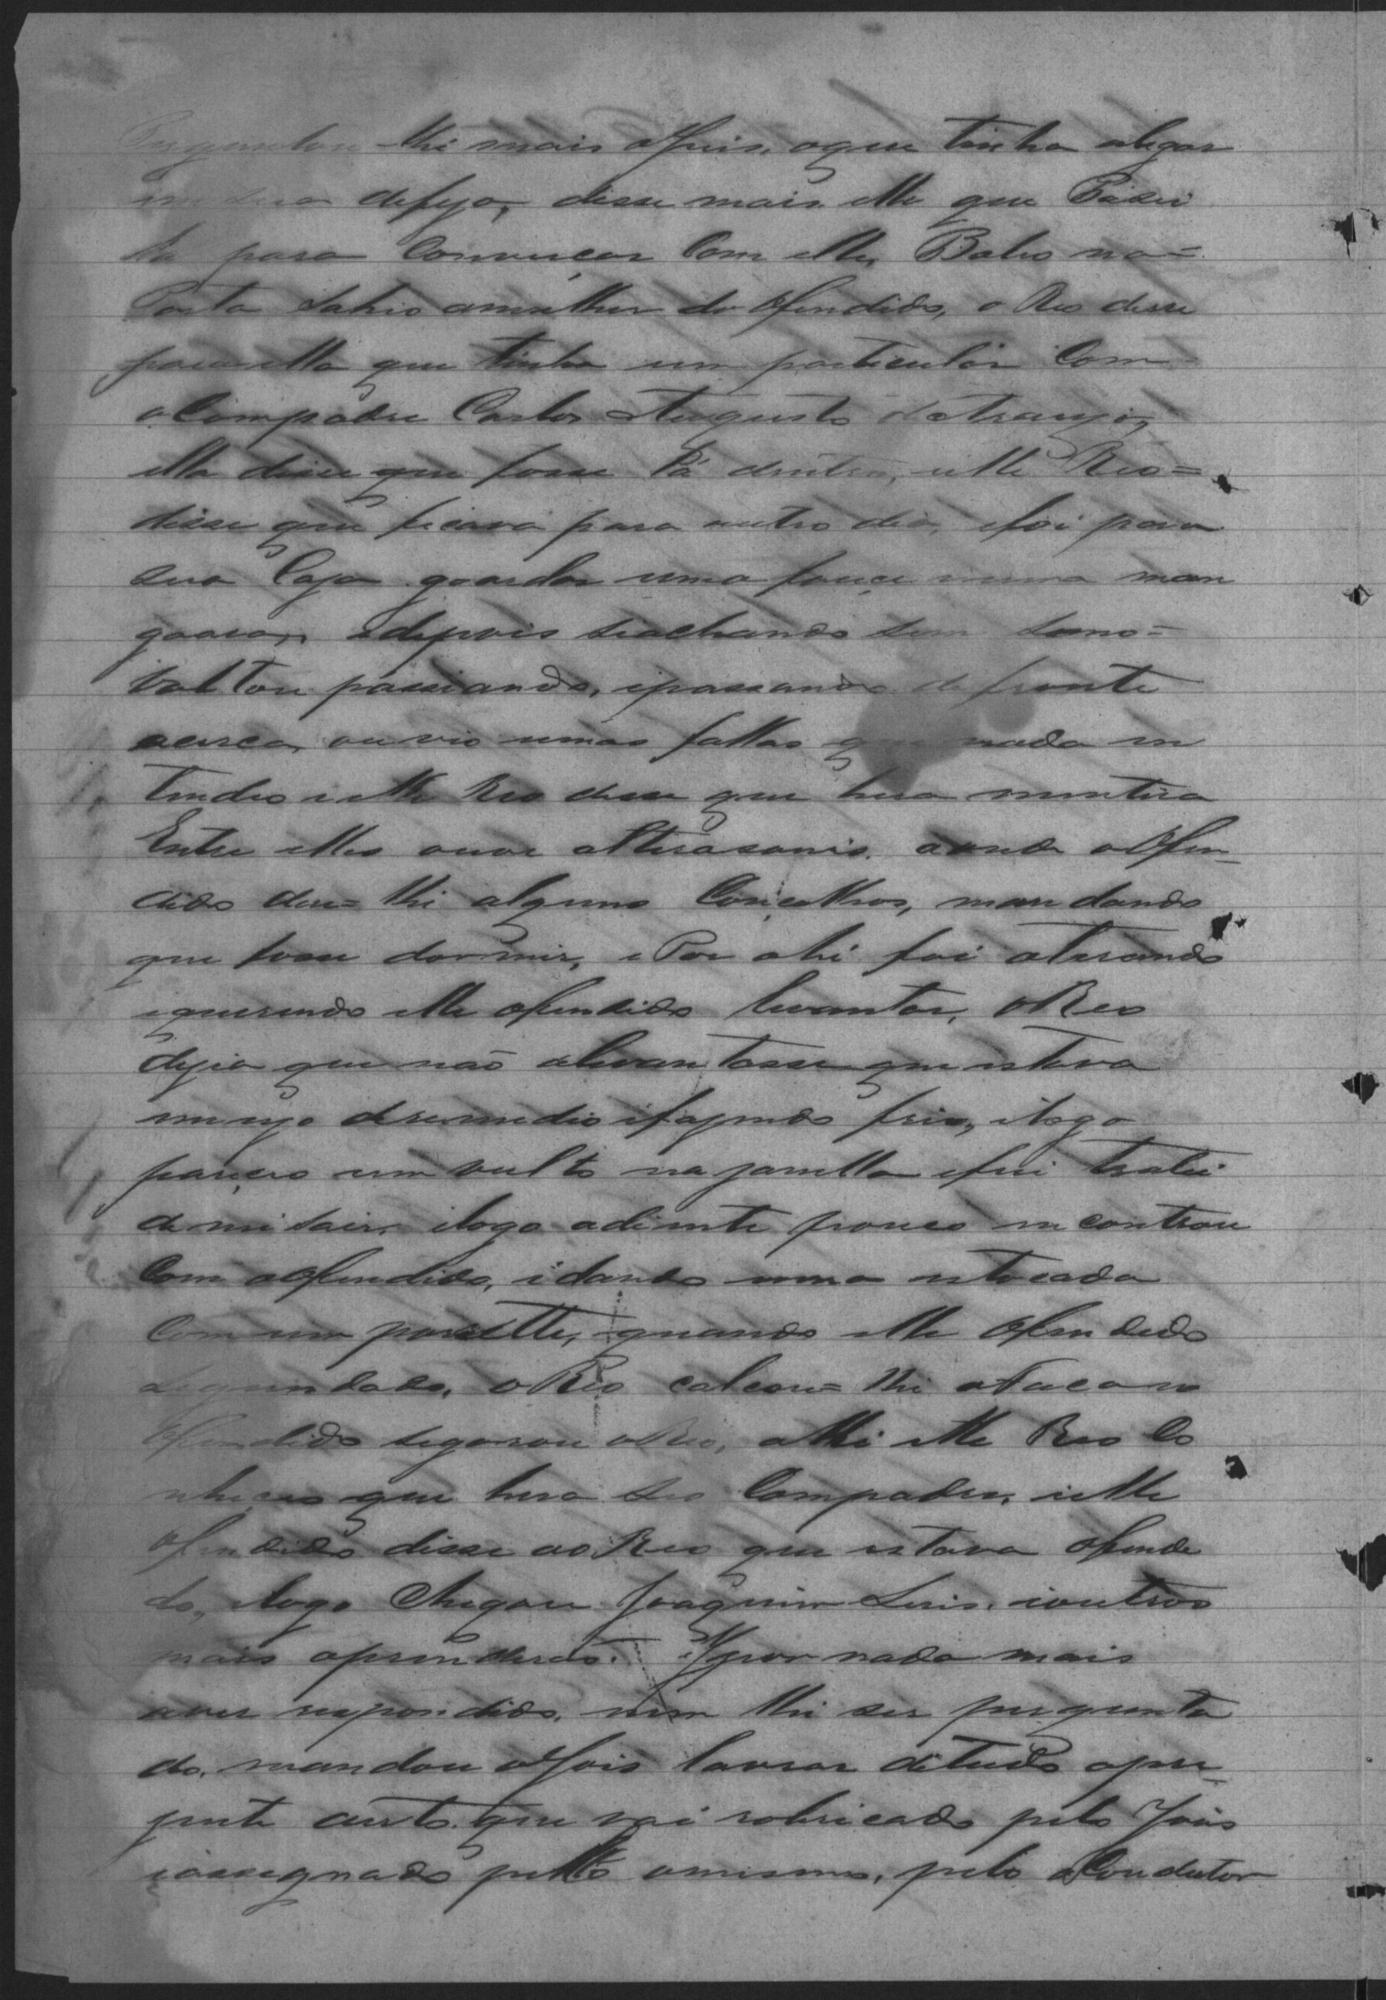 Perguntou lhi mais oJuis, oque tinha alegar
em sua defeja, disse mais elle que
la para Converçar Com elle, Bateo na=
Porta Sahio amulher do ofendido, o Reo disse
paraella que tinha um particular Com
o Compadre Carlos Augusto de Araujo,
ella disse que fosse lá dentro, i elle Reo=
disse que ficava para outro dia, efoi para
sua Caja guardar uma fouçe numa man
gueira, edepois seachando sem sono=
Voltou passiando, ipassando de fronte
acerca, ouvio umas fallas que nada in
tendeo i elle Reo disse que hera mentira
Entre elles ouve alterasonis. aonde oOfen_
dido deu=lhi alguns Conçelhos, mandando
que fosse dormir, e Por ahi foi aterando
iquerendo elle ofendido levantar, oReo
dijia que não alevantasse que estava
mujo deremedio ifajendo frio, ilogo
pareçeo um vulto najanella efui tratei
demi sair, ilogo adiente pouco incontrou
Com oOfendido, idando uma estocada
Com um porette, quando elle Ofendido
segundado, oReo calcou=lhi afaca
Ofendido segurou oReo, alli elle Reo Co
nheçeo que hera seo Compadre, i elle
Ofendido disse ao Reo que estava ofendi
do, ilogo Chegou Joaquim Luis, ioutros
mais oprenderão. E por nada mais
aver respondido, nem lhi ser pergunta
do, mandou oJuis lavrar ditudo opre_
jente auto que vai robricado pelo Juis
iassegnado pello omesmo, pelo oCondutor